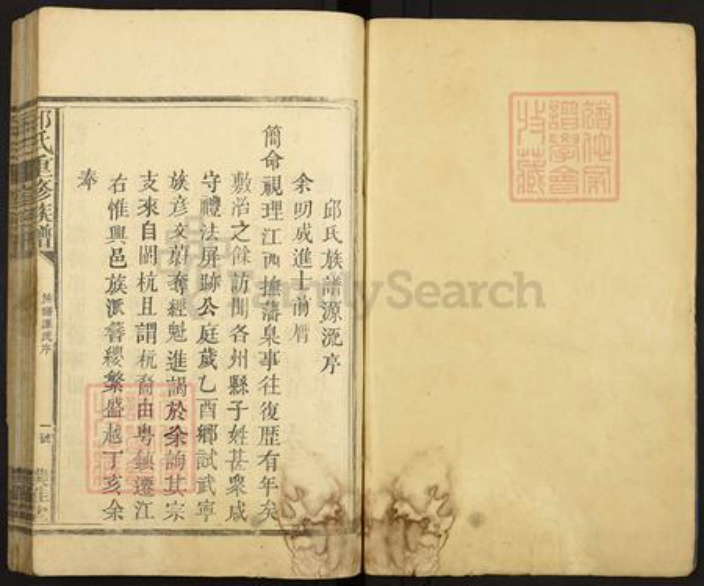 邱氏族譜源流序
余叨咸進士前膺
簡命視理江西撫藩臬事往復歷有年矣
敷治之餘訪聞各州縣子姓甚衆咸
守禮法屏跡公庭歲乙酉鄉試武寧
族彦文蔚奪經魁進謁於余詢其宗
支來自閩杭且謂杭裔由粤鎮遷江
右惟興邑族派簪纓繁盛越丁亥余
奉
邱氏重修族譜
族譜源流序
一號
FamilySearch